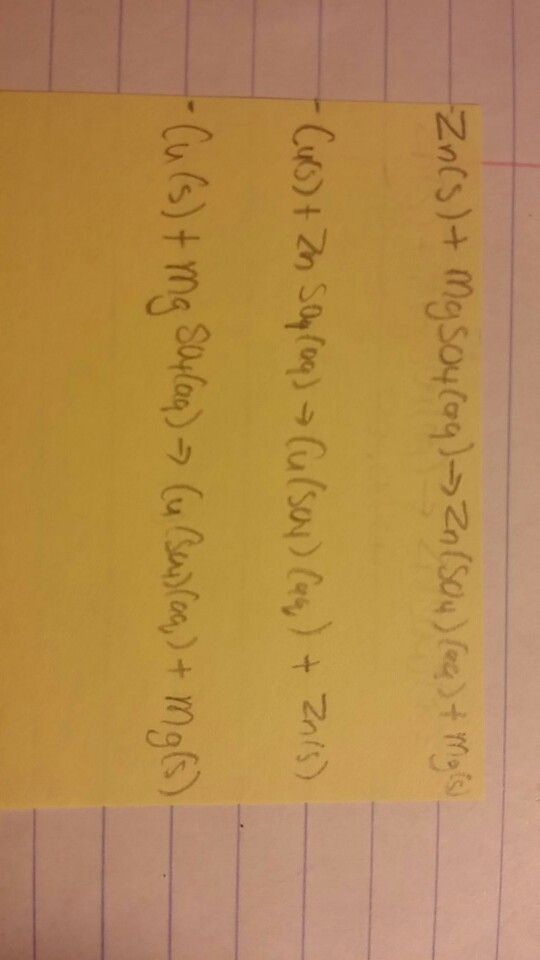 - Zn(s) + MgSO4(aq) → Zn(SO4)(aq) + Mg(s)
- Cu(s) + ZnSO4(aq) → Cu(SO4)(aq) + Zn(s)
- Cu(s) + MgSO4(aq) → Cu(SO4)(aq) + Mg(s)